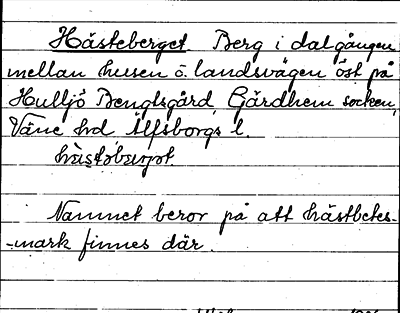 Hästeberget. Berg i dalgången
mellan husen o. landsvägen öst på
Hulljö Bengtsgård, Gärdhem socken,
Väne hd Älfsborgs l.
hästəbarjət.
Namnet beror på att hästbetes-
-mark finnes där.